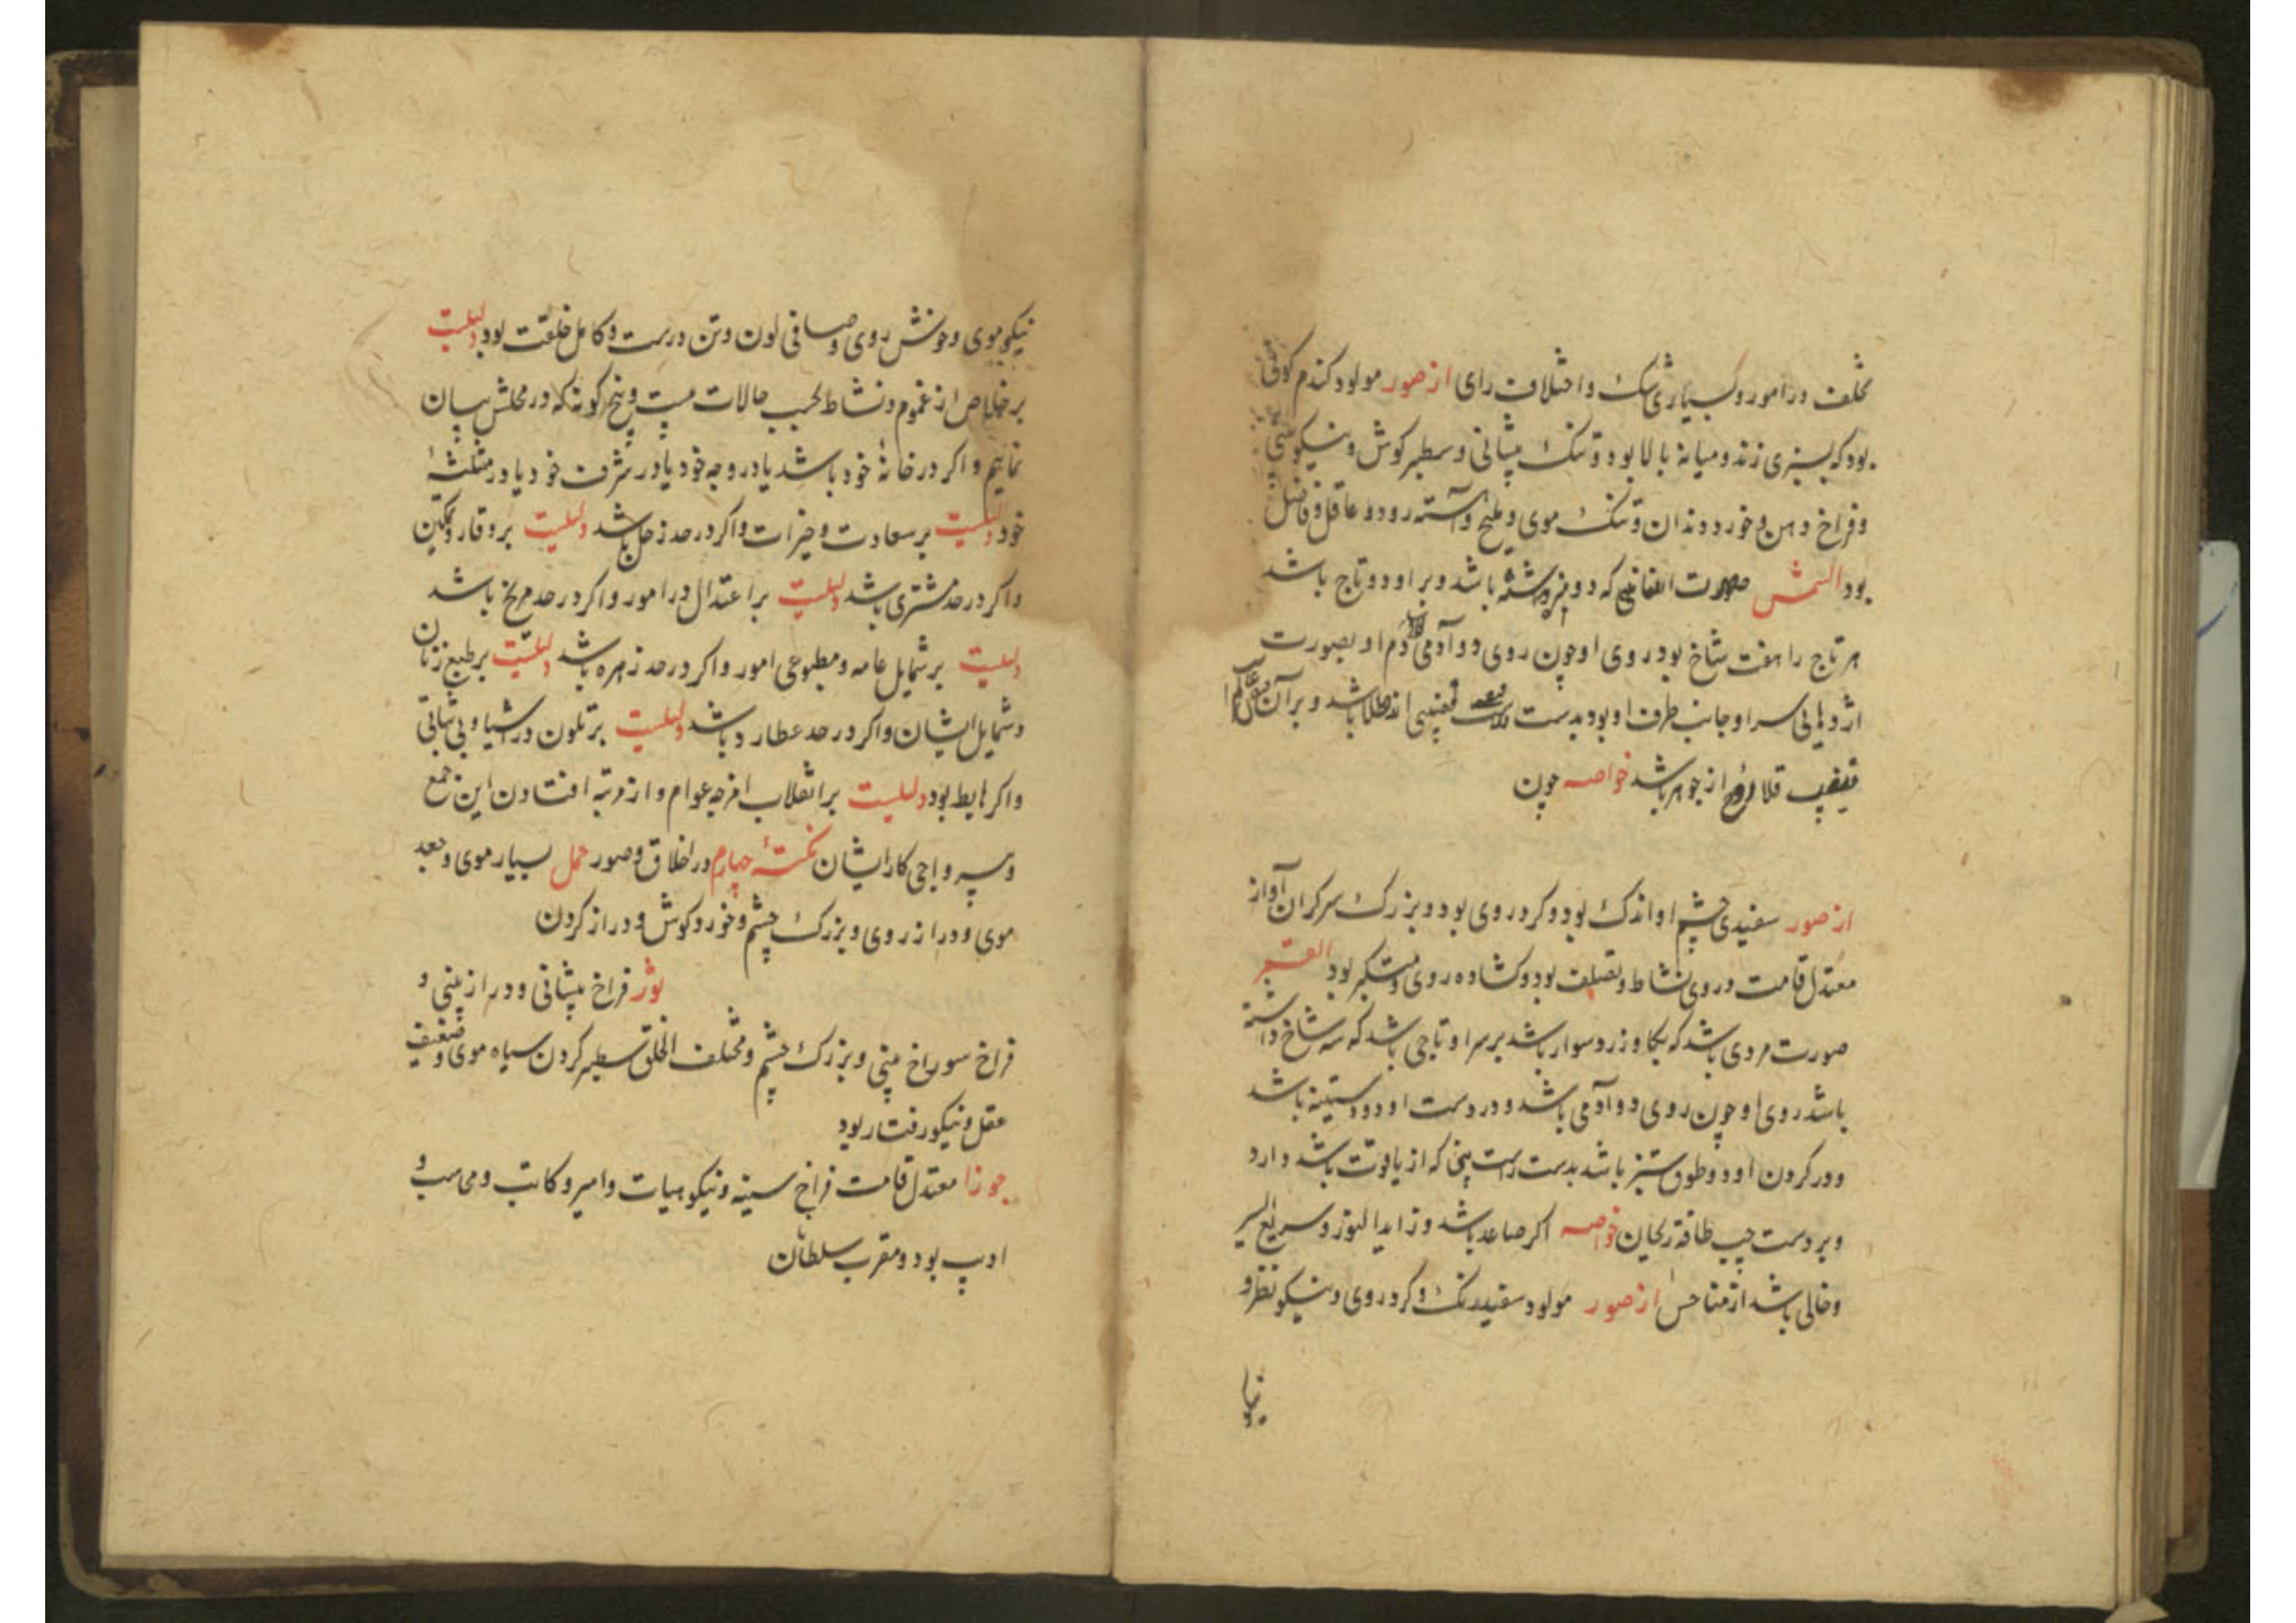 مختلف در امور و بسیاری شک و اختلاف رای از صور مولود کندم کون
بود که بسبزی زند و میانه بالا بود و تنک پیشانی و سطبر کوش و نیکو
و فراخ دهن و خورد دندان و تنک موی و ملیح و آهسته رود و عاقل و فاضل
بود الشمس صورت که دو باشد و بر او دو تاج باشد
هر تاج را هفت شاخ بود روی او چون روی دو آدمی دم او بصورت
اژدهایی سر او جانب طرف او بود بدست قضیبی از طلا باشد و بر آن
قضیب از جوهر باشد خواصه چون
از صور سفیدی چشم او اندک بود و کرد روی بود و بزرک سر کران آواز
معتدل قامت و روی نشاط و تصلف بود و کشاده روی و متکبر بود القمر
صورت مردی باشد که بکاو زرد سوار باشد بر سر او تاجی باشد که سه شاخ داشته
باشد روی او چون روی دو آدمی باشد و در دست او دو دستینه باشد
و در کردن او دو طوق سبز باشد بدست راست که از یاقوت باشد دارد
و بر دست چپ طاقه ریحان خواصه اکر صاعد باشد و زاید النور و سریع السیر
و خالی باشد از مناحس از صور مولود سفید رنک و کرد روی و نیکو نظر و
نیکو
نیکو موی و خوش روی و صافی لون و تن درست و کامل خلقت بود دلیلست
بر خلاص از غموم و نشاط بحسب حالات بیست و پنج کونه که در محلش بیان
نماییم و اکر در خانهٔ خود باشد یا در وجه خود یا در شرف خود یا در مثلثهٔ
خود دلیلست بر سعادت و خیرات و اکر در حد زحل باشد دلیلست بر وقار و تمکین
و اکر در حد مشتری باشد دلیلست بر اعتدال در امور و اکر در حد مریخ باشد
دلیلست بر شمایل عامه و مطبوعی امور و اکر در حد زهره باشد دلیلست بر طبع زنان
و شمایل ایشان و اکر در حد عطارد باشد دلیلست بر تلون در اشیا و بی ثباتی
و اکر هابط بود دلیلست بر انقلاب امزجه عوام و از مرتبه افتادن این جمع
و بی رواجی کار ایشان نکتهٔ چهارم در اخلاق و صور حمل بسیار موی و جعد
موی و دراز روی و بزرک چشم و خورد کوش و دراز کردن
ثور فراخ پیشانی و دراز بینی و
فراخ سوراخ بینی و بزرک چشم و مختلف الخلق سطبر کردن سیاه موی و ضعیف
عقل و نیکو رفتار بود
جوزا معتدل قامت فراخ سینه و نیکو هیات و امیر و کاتب و محاسب و
ادیب بود و مقرب سلطان